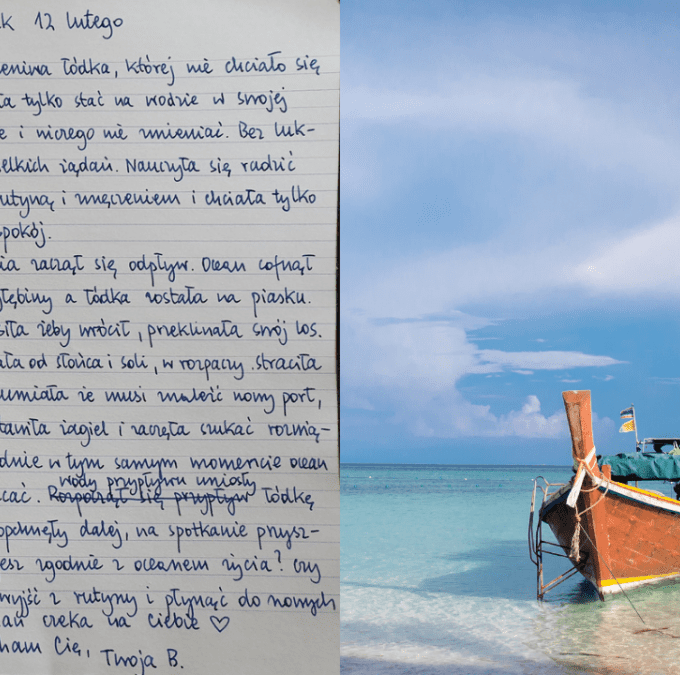 k 12 lutego
eniwa łódka, której nie chciało się
ła tylko stać na wodzie w swojej
e i niczego nie zmieniać. Bez luk-
elkich żądań. Nauczyła się radzić
utyną i zmęczeniem i chciała tylko
pokój.
ia zaczął się odpływ. Ocean cofnął
głębiny a łódka została na piasku.
siła żeby wrócił, przeklinała swój los.
ała od słońca i soli, w rozpaczy straciła
umiała że musi znaleźć nowy port,
tawiła żagiel i zaczęła szukać rozwią-
dnie w tym samym momencie ocean
wody przypływu uniosły
cać. Rozpoczął się przypływ łódkę
opchnęły dalej, na spotkanie przysz-
esz zgodnie z oceanem życia? Czy
wyjść z rutyny i płynąć do nowych
ań czeka na ciebie ♡
ham Cię,
Twoja B.